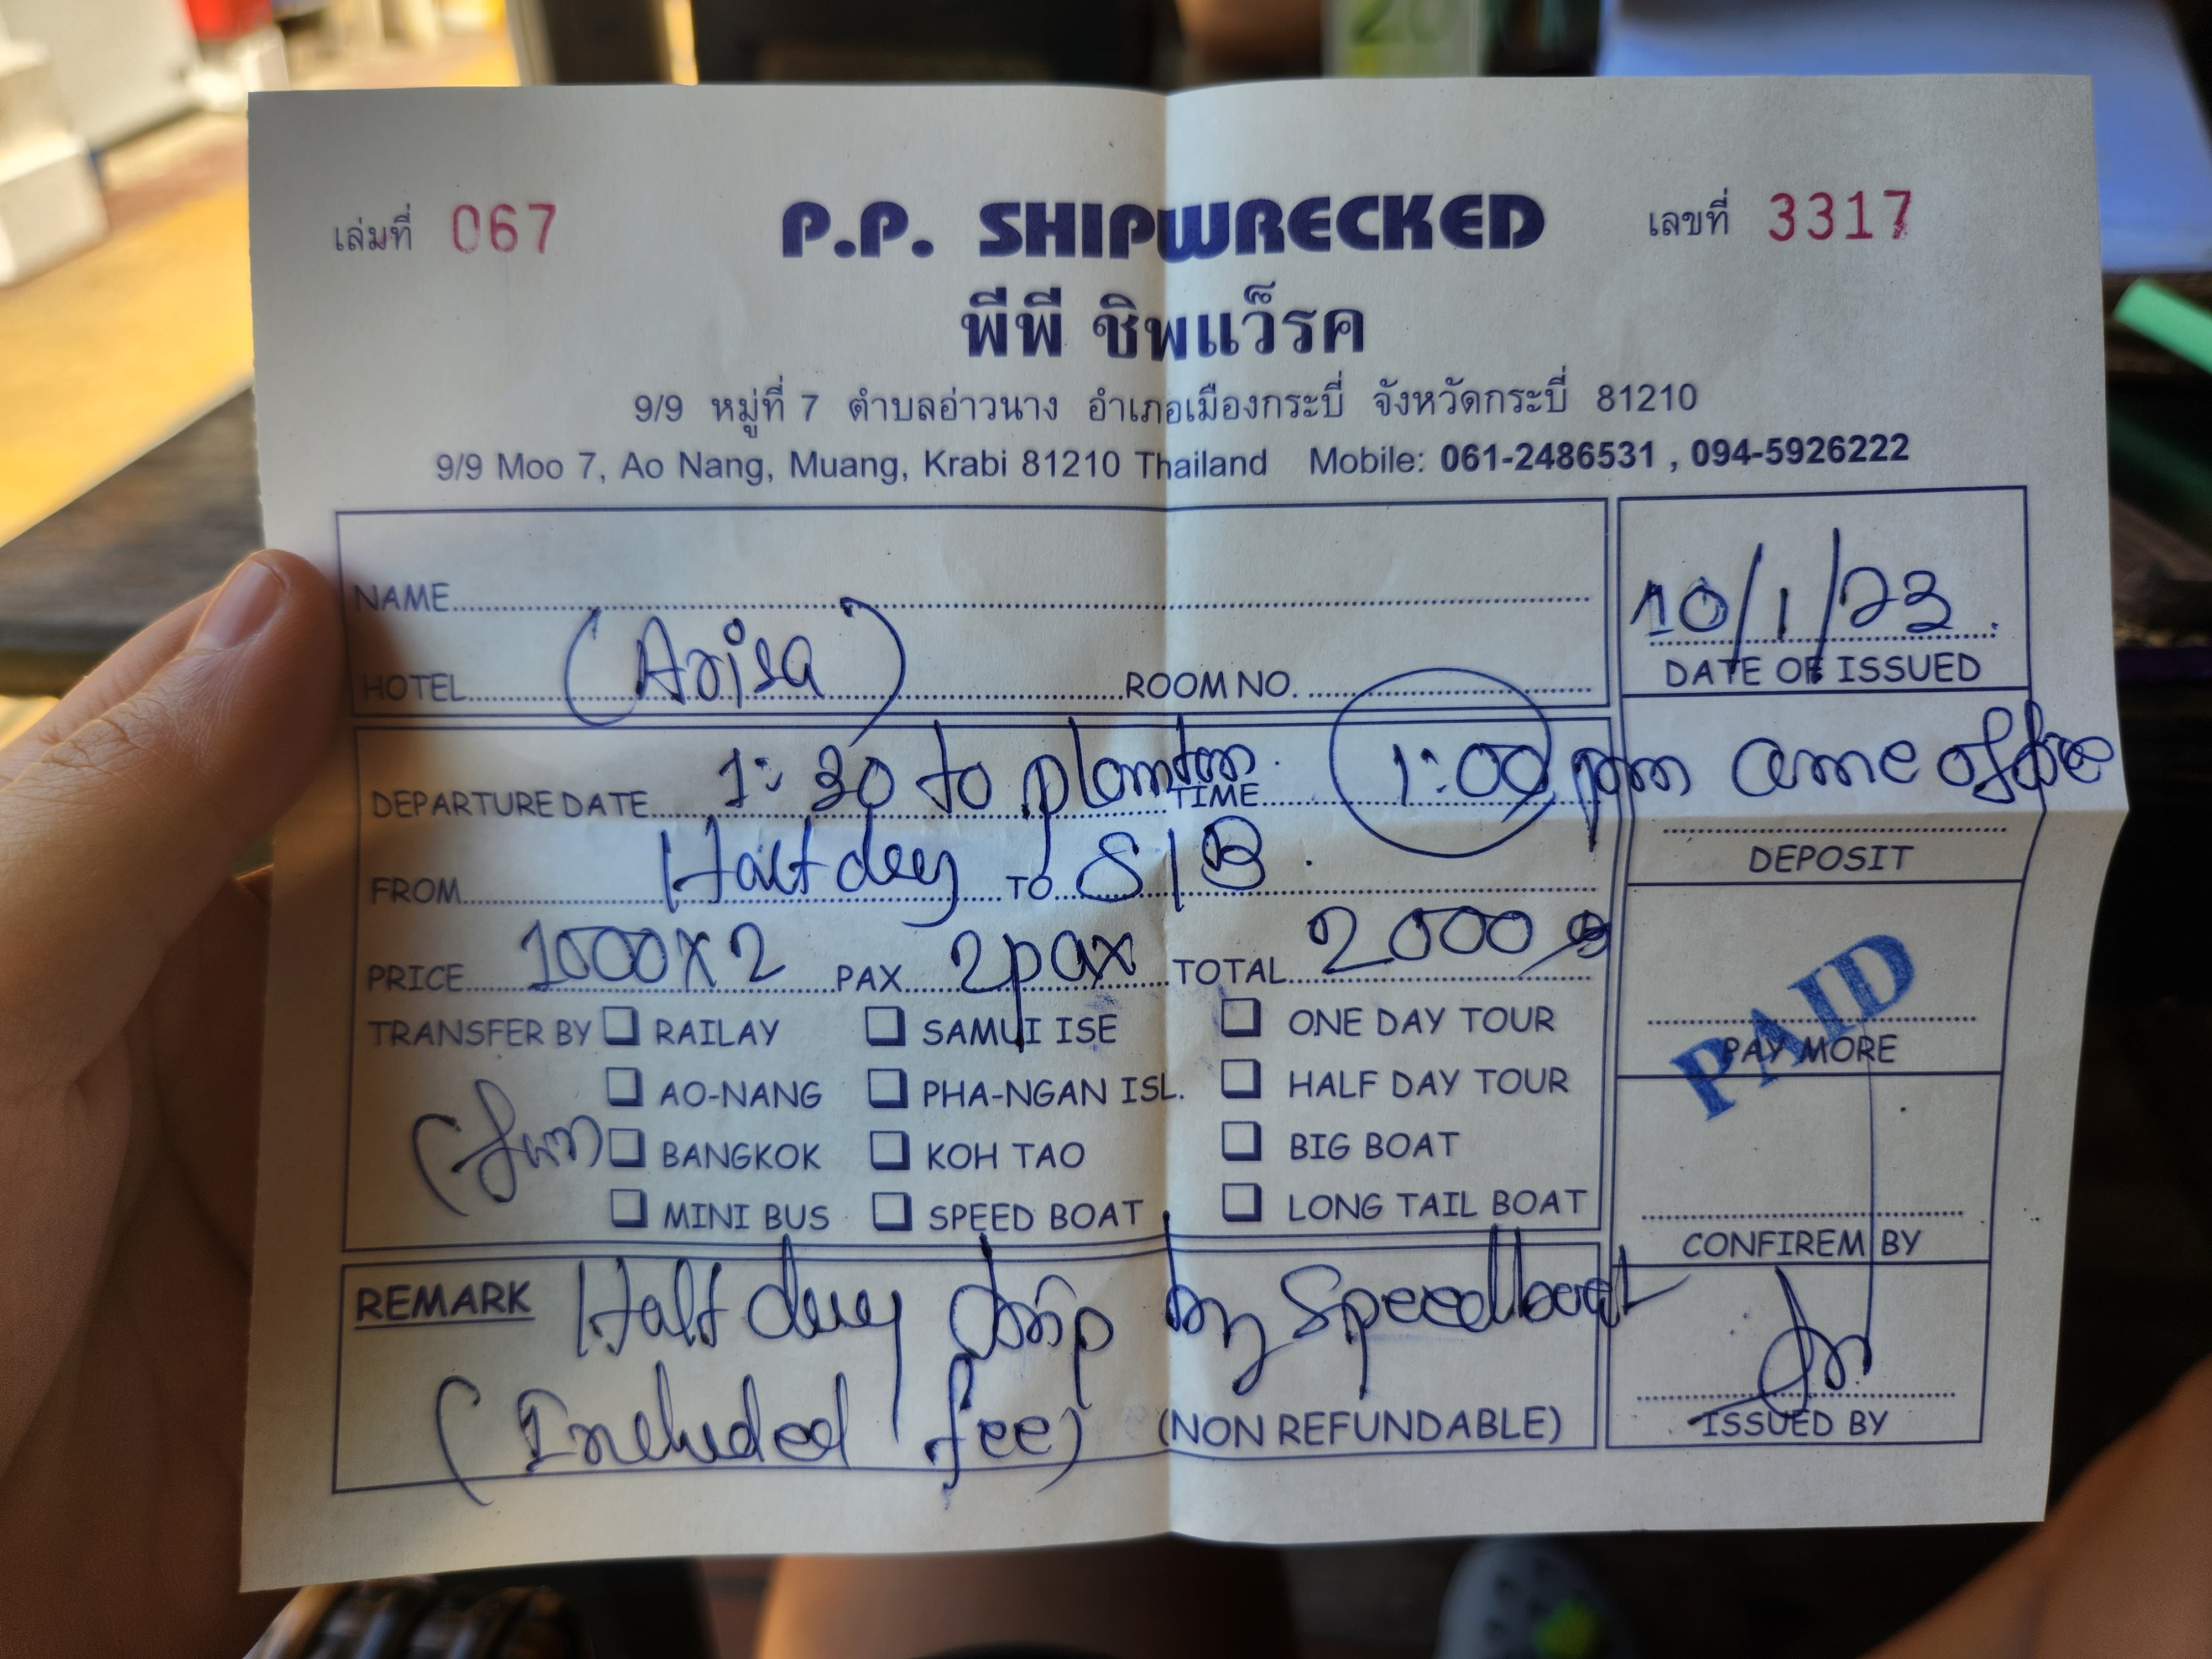 เล่มที่ 067 P.P. SHIPWRECKED เลขที่ 3317
พีพี ชิพแว็รค
9/9 หมู่ที่ 7 ตำบลอ่าวนาง อำเภอเมืองกระบี่ จังหวัดกระบี่ 81210
9/9 Moo 7, Ao Nang, Muang, Krabi 81210 Thailand Mobile: 061-2486531 , 094-5926222
NAME
HOTEL (Arisa) ROOM NO.
10/1/23
DATE OF ISSUED
DEPARTURE DATE 1:30 to TIME 1:00 pm came office
DEPOSIT
FROM Half day TO S/B
PRICE 1000x2 PAX 2pax TOTAL 2000
PAID
PAY MORE
TRANSFER BY RAILAY SAMUI ISE ONE DAY TOUR
AO-NANG PHA-NGAN ISL. HALF DAY TOUR
BANGKOK KOH TAO BIG BOAT
MINI BUS SPEED BOAT LONG TAIL BOAT
CONFIREM BY
REMARK Half day trip by Speedboat
(Included fee) (NON REFUNDABLE)
ISSUED BY